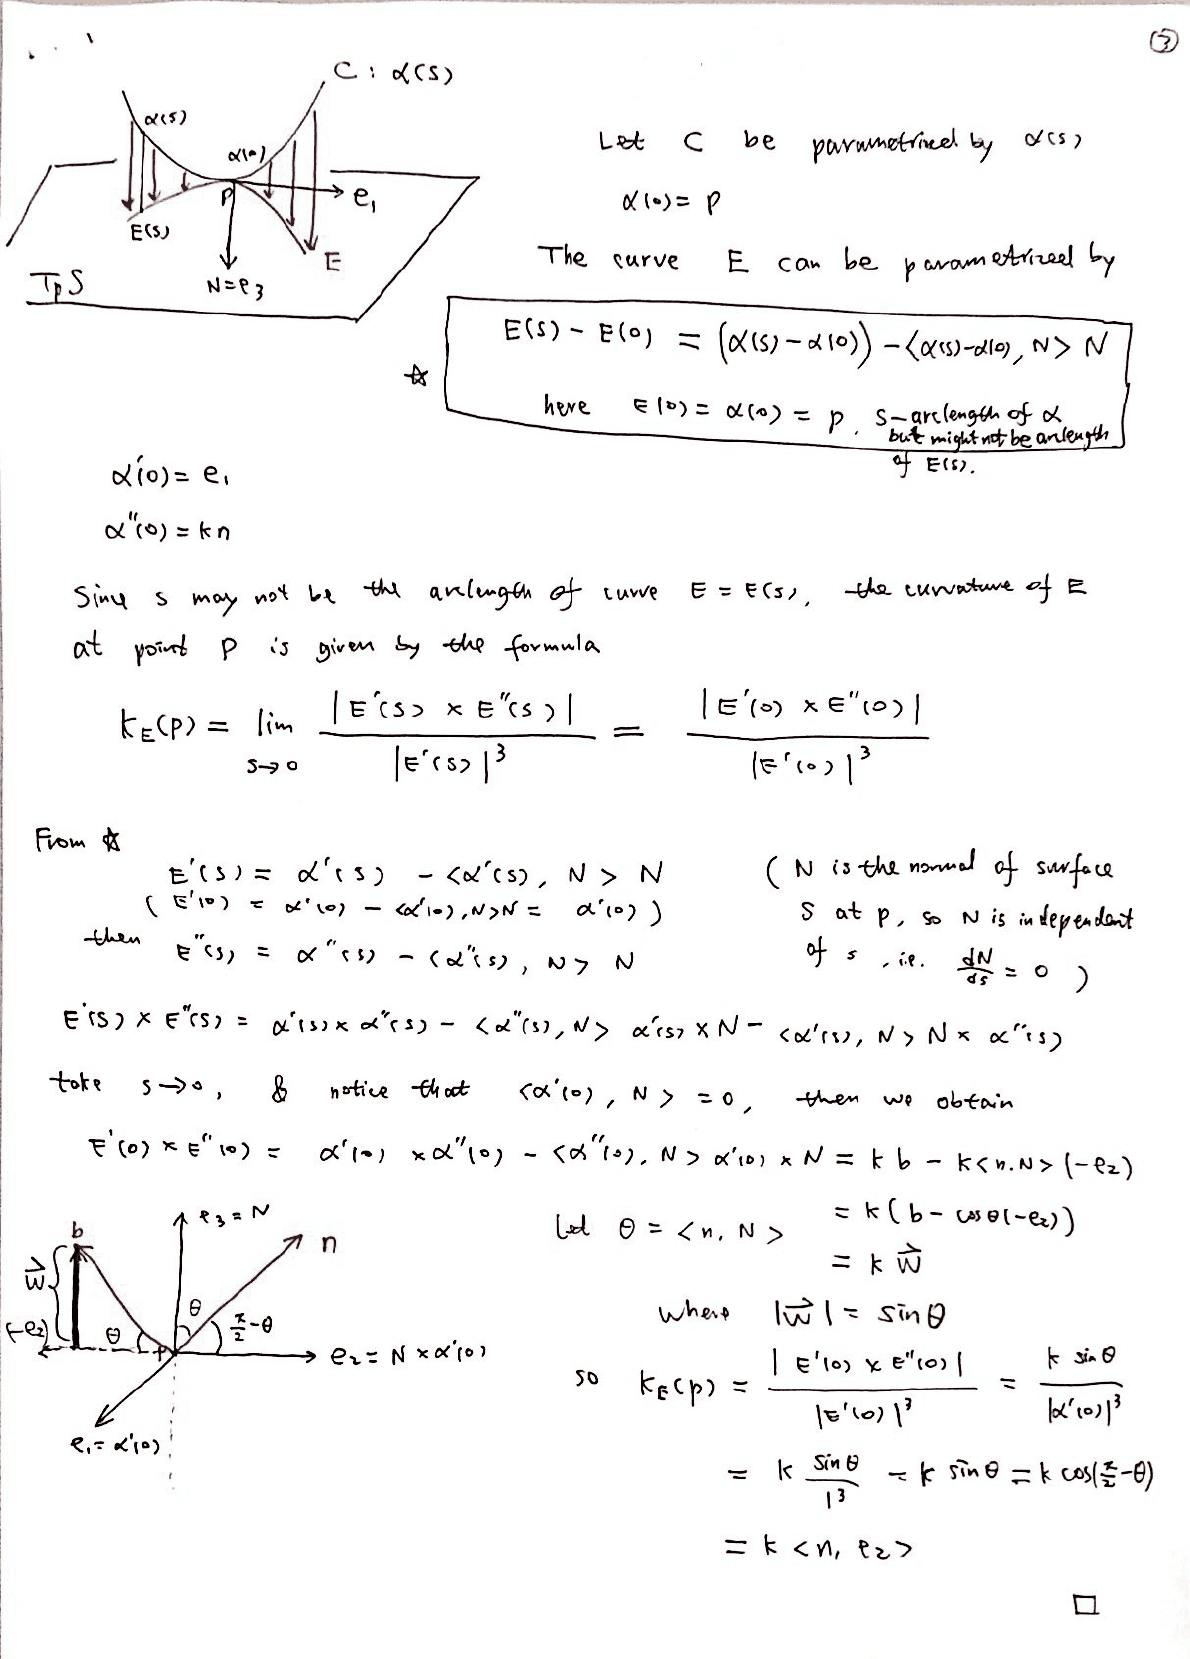 ③
C : α(s)
α(s)
α(0)
P
e₁
E(s)
E
TₚS
N=e₃
Let C be parametrized by α(s)
α(0)= p
The curve E can be parametrized by
☆ E(s) - E(0) = (α(s) - α(0)) - <α(s)-α(0), N> N
here E(0) = α(0) = p. s-arclength of α
but might not be arclength
of E(s).
α'(0) = e₁
α''(0) = kn
Since s may not be the arclength of curve E = E(s), the curvature of E
at point P is given by the formula
k_E(p) = lim_{s→0} |E'(s) × E''(s)| / |E'(s)|³ = |E'(0) × E''(0)| / |E'(0)|³
From ☆
E'(s) = α'(s) - <α'(s), N> N
( E'(0) = α'(0) - <α'(0), N>N = α'(0) )
then E''(s) = α''(s) - <α''(s), N> N
( N is the normal of surface
S at p, so N is independent
of s, i.e. dN/ds = 0 )
E'(s) × E''(s) = α'(s) × α''(s) - <α''(s), N> α'(s) × N - <α'(s), N> N × α''(s)
take s→0, & notice that <α'(0), N> = 0, then we obtain
E'(0) × E''(0) = α'(0) × α''(0) - <α''(0), N> α'(0) × N = k b - k<n.N> (-e₂)
= k(b - cosθ(-e₂))
Let θ = <n, N>
= k w⃗
where |w⃗| = sinθ
so k_E(p) = |E'(0) × E''(0)| / |E'(0)|³ = k sinθ / |α'(0)|³
= k sinθ / 1³ = k sinθ = k cos(π/2-θ)
= k <n, e₂>
□
b
e₃ = N
n
w⃗
(-e₂)
θ
θ
π/2-θ
P
e₂ = N × α'(0)
e₁ = α'(0)